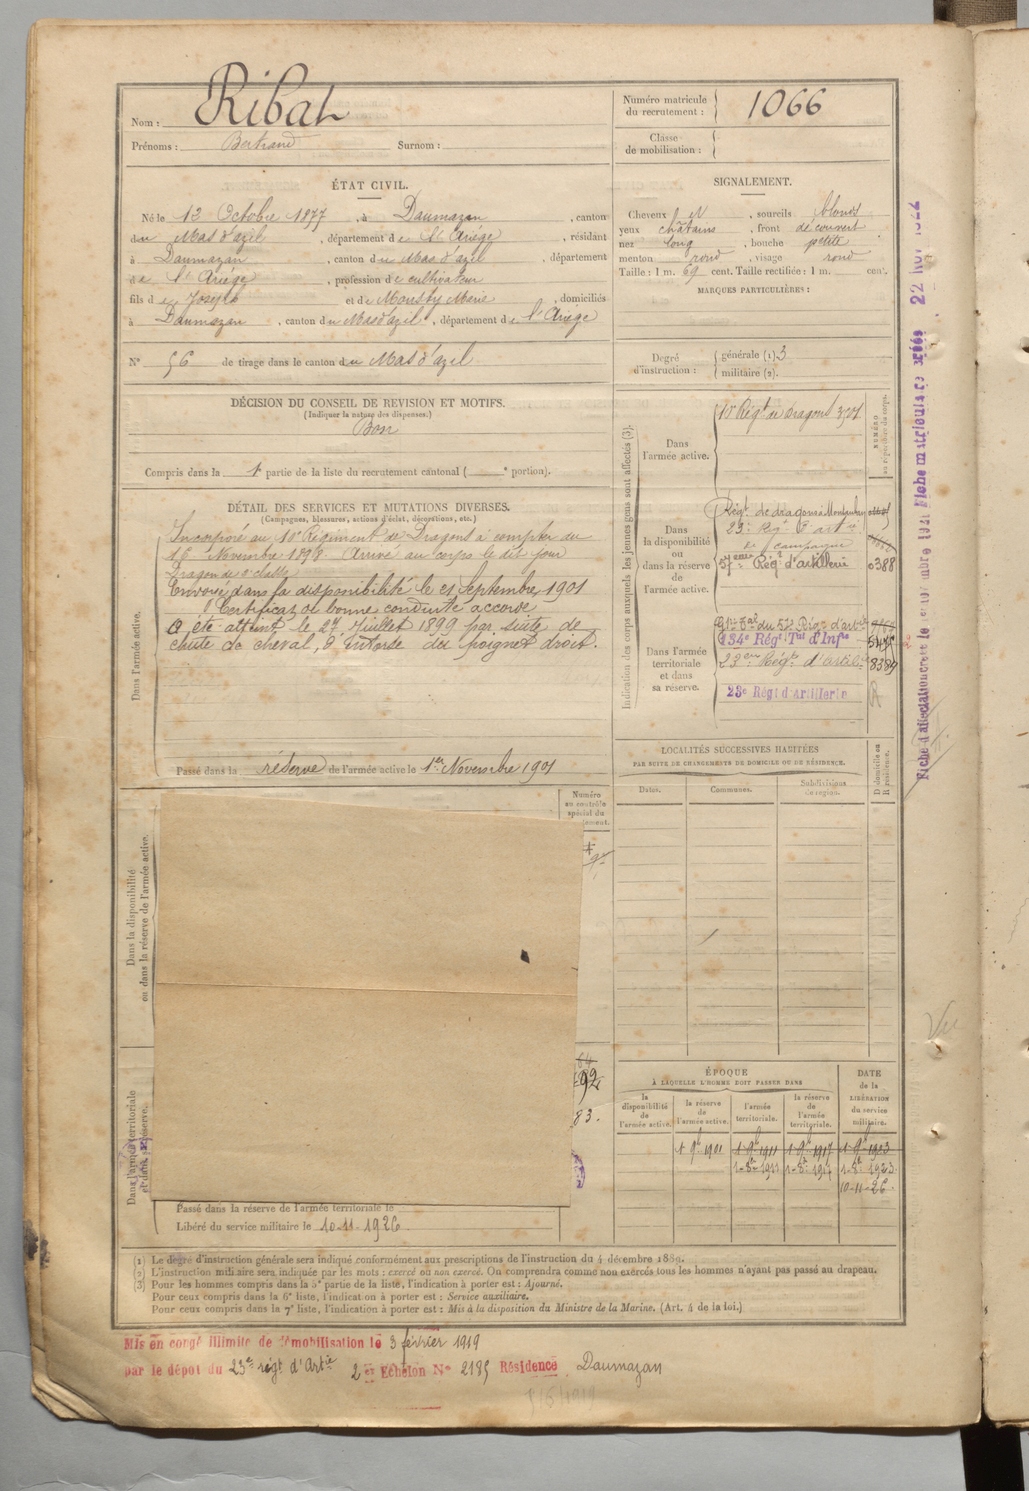 Nom : Ribat
Prénoms : Bertrand Surnom :
Numéro matricule du recrutement : 1066
Classe de mobilisation :
ÉTAT CIVIL.
Né le 12 Octobre 1877, à Daumazan, canton
du Mas d'azil, département de l'Ariége, résidant
à Daumazan, canton du Mas d'azil, département
de l'Ariége, profession de cultivateur
fils de Joseph et de Mousty Marie, domiciliés
à Daumazan, canton du Mas d'azil, département de l'Ariége
N° 56 de tirage dans le canton du Mas d'azil
SIGNALEMENT.
Cheveux N, sourcils blonds
yeux châtains, front découvert
nez long, bouche petite
menton rond, visage rond
Taille : 1 m. 69 cent. Taille rectifiée : 1 m. cent.
MARQUES PARTICULIÈRES :
Degré d'instruction : générale (1) 3
militaire (2).
DÉCISION DU CONSEIL DE REVISION ET MOTIFS.
(Indiquer la nature des dispenses.)
Bon
Compris dans la 1e partie de la liste du recrutement cantonal ( e portion).
DÉTAIL DES SERVICES ET MUTATIONS DIVERSES.
(Campagnes, blessures, actions d'éclat, décorations, etc.)
Dans l'armée active.
Incorporé au 10e Régiment de Dragons à compter du
16 Novembre 1898. Arrivé au corps le dit jour
Dragon de 2e classe
Envoyé dans la disponibilité le 21 Septembre 1901
Certificat de bonne conduite accordé
A été atteint le 27 Juillet 1899 par suite de
chute de cheval, d'entorse du poignet droit.
Passé dans la réserve de l'armée active le 1er Novembre 1901
Indication des corps auxquels les jeunes gens sont affectés (3).
NUMÉRO au répertoire du corps.
Dans l'armée active.
10e Régt de Dragons 3701
Dans la disponibilité ou dans la réserve de l'armée active.
Régt de dragons à Montauban
23e Régt d'artie
de campagne
57eme Régt d'artillerie 0388
Dans l'armée territoriale et dans sa réserve.
134e Régt Tal d'Infie
23eme Régt d'artil. 8389
23e Régt d'Artillerie
LOCALITÉS SUCCESSIVES HABITÉES
PAR SUITE DE CHANGEMENTS DE DOMICILE OU DE RÉSIDENCE.
Dates. Communes. Subdivisions de région. D domicile ou R résidence.
Numéro au contrôle spécial du
Dans la disponibilité ou dans la réserve de l'armée active.
Dans l'armée territoriale et dans sa réserve.
83.
ÉPOQUE
À LAQUELLE L'HOMME DOIT PASSER DANS
la disponibilité de l'armée active. la réserve de l'armée active. l'armée territoriale. la réserve de l'armée territoriale.
DATE de la LIBÉRATION du service militaire.
1 9b 1901 1 9b 1911 1 9b 1917 1 9b 1923
1-8e 1911 1-8e 1917 1-8e 1923
10-11-26.
Passé dans la réserve de l'armée territoriale le
Libéré du service militaire le 10-11-1926
(1) Le degré d'instruction générale sera indiqué conformément aux prescriptions de l'instruction du 4 décembre 1889.
(2) L'instruction militaire sera indiquée par les mots : exercé ou non exercé. On comprendra comme non exercés tous les hommes n'ayant pas passé au drapeau.
(3) Pour les hommes compris dans la 5e partie de la liste, l'indication à porter est : Ajourné.
Pour ceux compris dans la 6e liste, l'indication à porter est : Service auxiliaire.
Pour ceux compris dans la 7e liste, l'indication à porter est : Mis à la disposition du Ministre de la Marine. (Art. 4 de la loi.)
Mis en congé illimité de démobilisation le 3 février 1919
par le dépôt du 23e régt d'Artie 2 er Echelon N° 2185 Résidence Daumazan
Vu